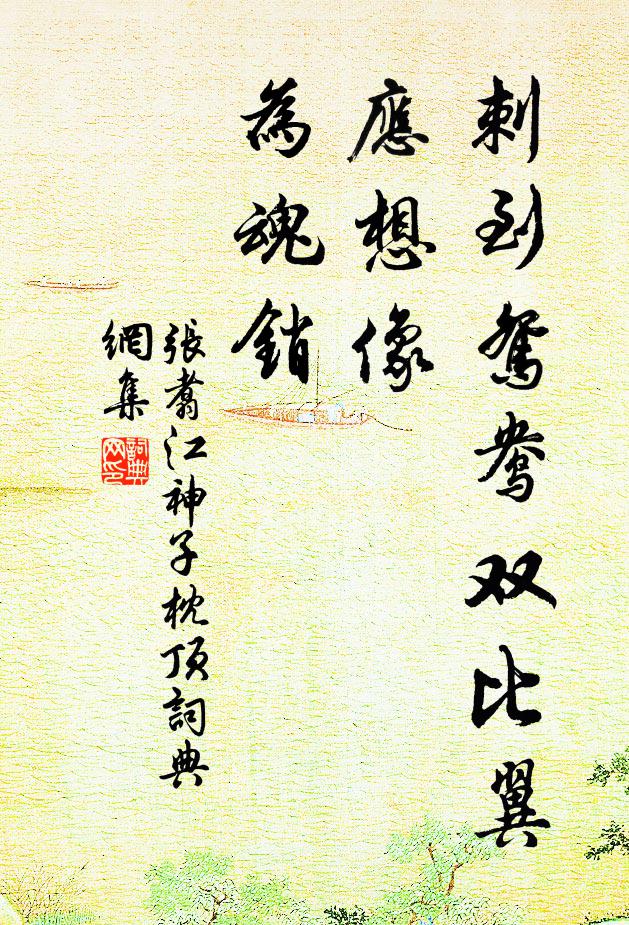 刺到鴛鴦双比翼
應想像
為魂銷
張翥江神子枕頂詞典
網集
詞典
网印